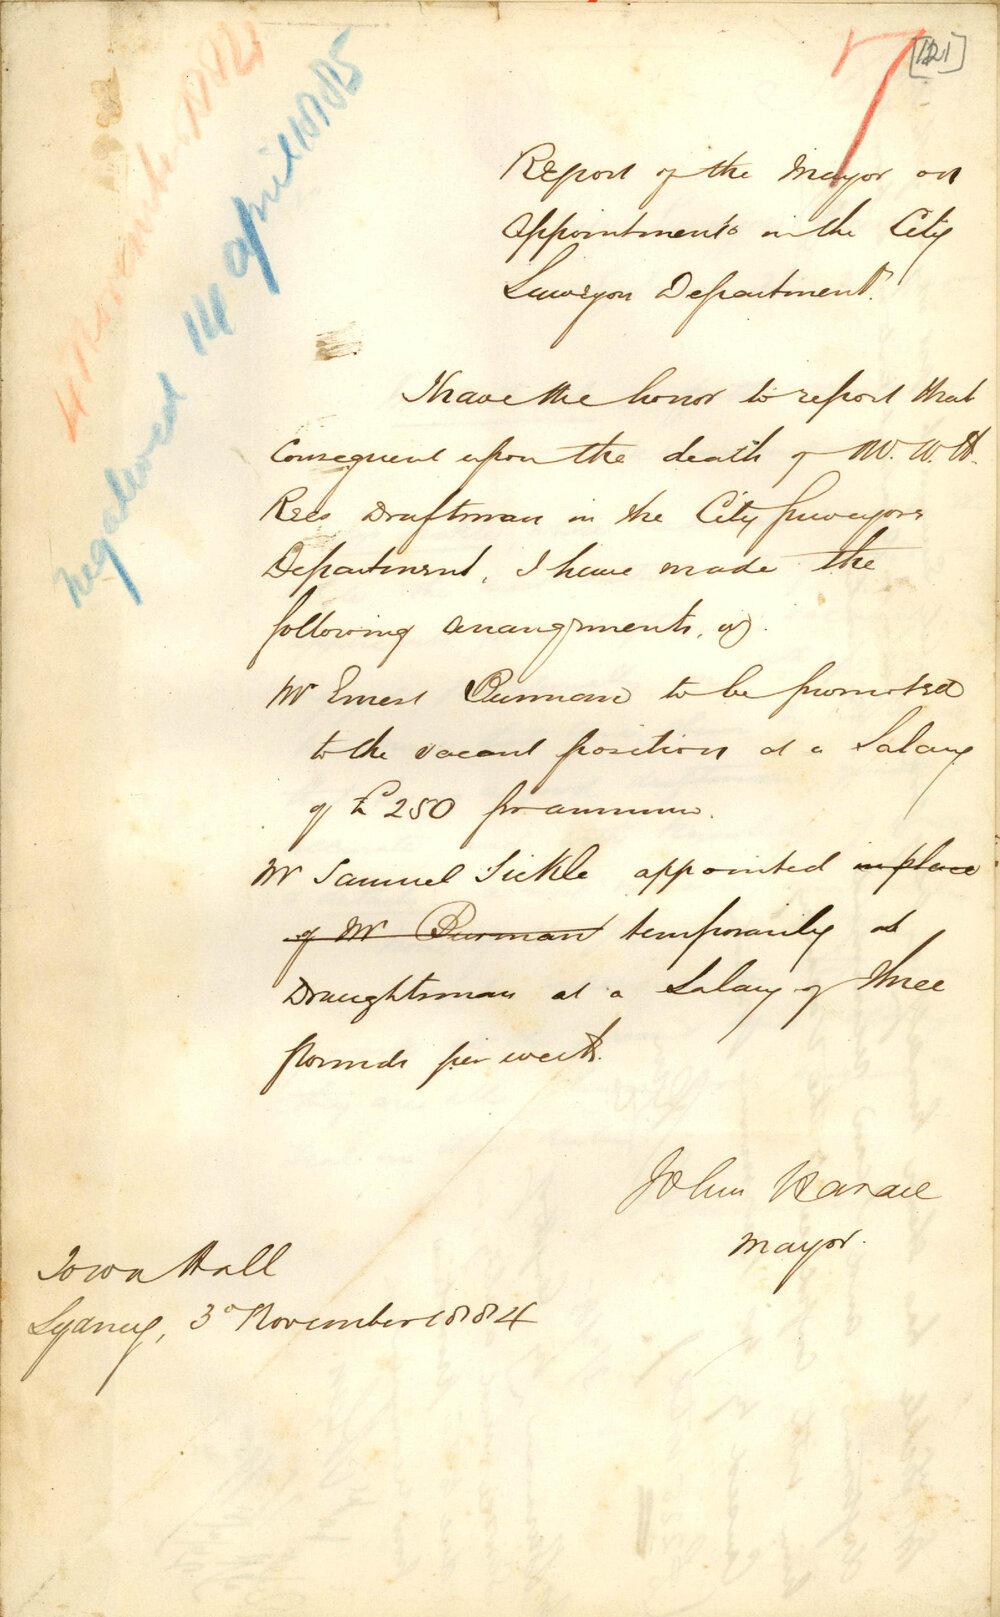 [121]
7
4 November 1884
negatived 14 April 1885
Report of the Mayor on
appointments in the City
Surveyors Department.
I have the honor to report that
consequent upon the death of Mr. W. H.
Rees Draftsman in the City Surveyors
Department, I have made the
following arrangements,
Mr Ernest Burman to be promoted
to the vacant position at a Salary
of £250 per annum.
Mr Samuel Sickle appointed in place
of Mr Burman temporarily as
Draughtsman at a Salary of three
Pounds per week.
John Hardie
Mayor.
Town Hall
Sydney, 3d November 1884